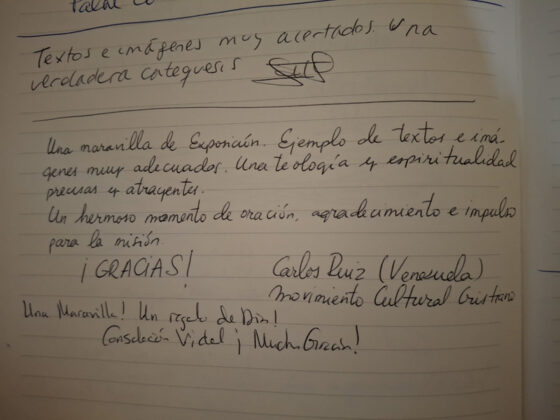 Textos e imágenes muy acertados. Una
verdadera catequesis
Una maravilla de Exposición. Ejemplo de textos e imá-
genes muy adecuados. Una teología y espiritualidad
precisas y atrayentes.
Un hermoso momento de oración, agradecimiento e impulso
para la misión.
¡GRACIAS!
Carlos Ruiz (Venezuela)
Movimiento Cultural Cristiano
Una Maravilla! Un regalo de Dios!
Consolación Vidal ¡Muchas Gracias!